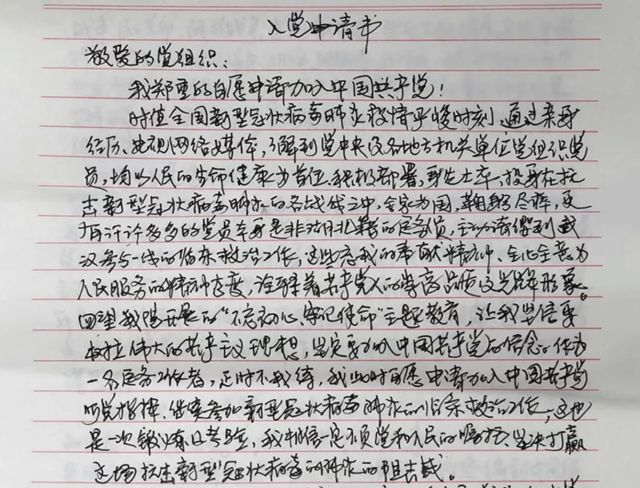 入党申请书
敬爱的党组织：
我郑重的自愿申请加入中国共产党！
时值全国新型冠状病毒肺炎疫情严峻时刻，通过亲身
经历、电视网络媒体，了解到党中央及各地方机关单位党组织党
员，均以人民的生命健康为首位，积极部署，身先士卒，投身在抗
击新型冠状病毒肺炎的各战线之中，舍家为国，鞠躬尽瘁，更
有许许多多的党员本身是非湖北籍的医务员，主动请缨到武
汉参与一线的临床救治工作，这些忘我的奉献精神、全心全意为
人民服务的精神态度，诠释着共产党人的崇高品质及光辉形象。
回望我院开展的“不忘初心、牢记使命”主题教育，让我坚信要
树立伟大的共产主义理想，坚定要加入中国共产党的信念。作为
一名医务工作者，正时不我待，我此时自愿申请加入中国共产党
听党指挥，继续参加新型冠状病毒肺炎的临床救治工作，这也
是一次锻炼和考验，我相信定不负党和人民的嘱托，坚决打赢
这场抗击新型冠状病毒的肺炎的阻击战。